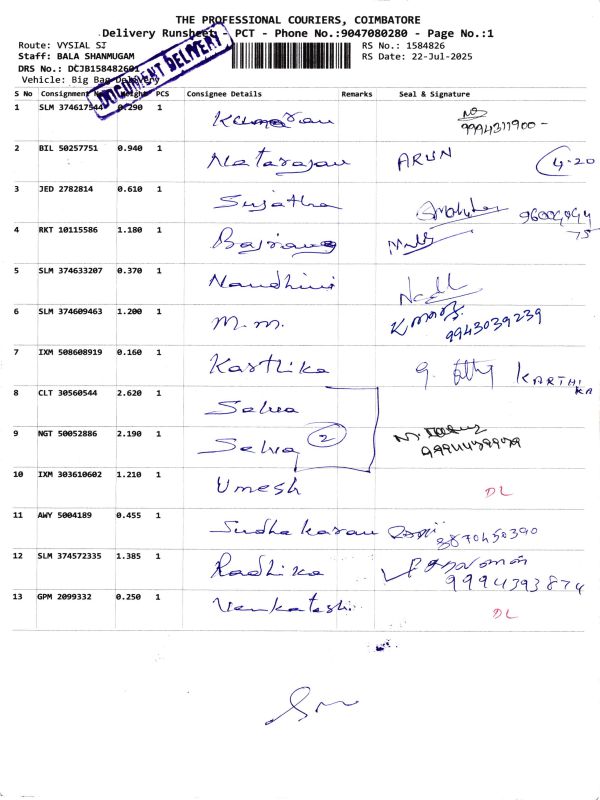 THE PROFESSIONAL COURIERS, COIMBATORE
Delivery Runsheet - PCT - Phone No.:9047080280 - Page No.:1
Route: VYSIAL SI
RS No.: 1584826
Staff: BALA SHANMUGAM
RS Date: 22-Jul-2025
DRS No.: DCJB158482601
Vehicle: Big Bag Delivery
DOCUMENT DELIVERY
S No Consignment PCS Consignee Details Remarks Seal & Signature
1 SLM 374617544 0.290 1 Kumaran 9994311900 -
2 BIL 50257751 0.940 1 Natarajan ARUN 4.20
3 JED 2782814 0.610 1 Sujatha
4 RKT 10115586 1.180 1 Bajrang
5 SLM 374633207 0.370 1 Nandhini
6 SLM 374609463 1.200 1 M.M. 9943039239
7 IXM 508608919 0.160 1 Karthika KARTHIKA
8 CLT 30560544 2.620 1 Selva
9 NGT 50052886 2.190 1 Selva 2
10 IXM 303610602 1.210 1 Umesh DL
11 AWY 5004189 0.455 1 Sudhakaran 8870450390
12 SLM 374572335 1.385 1 Radhika 9994393874
13 GPM 2099332 0.250 1 Venkatesh DL